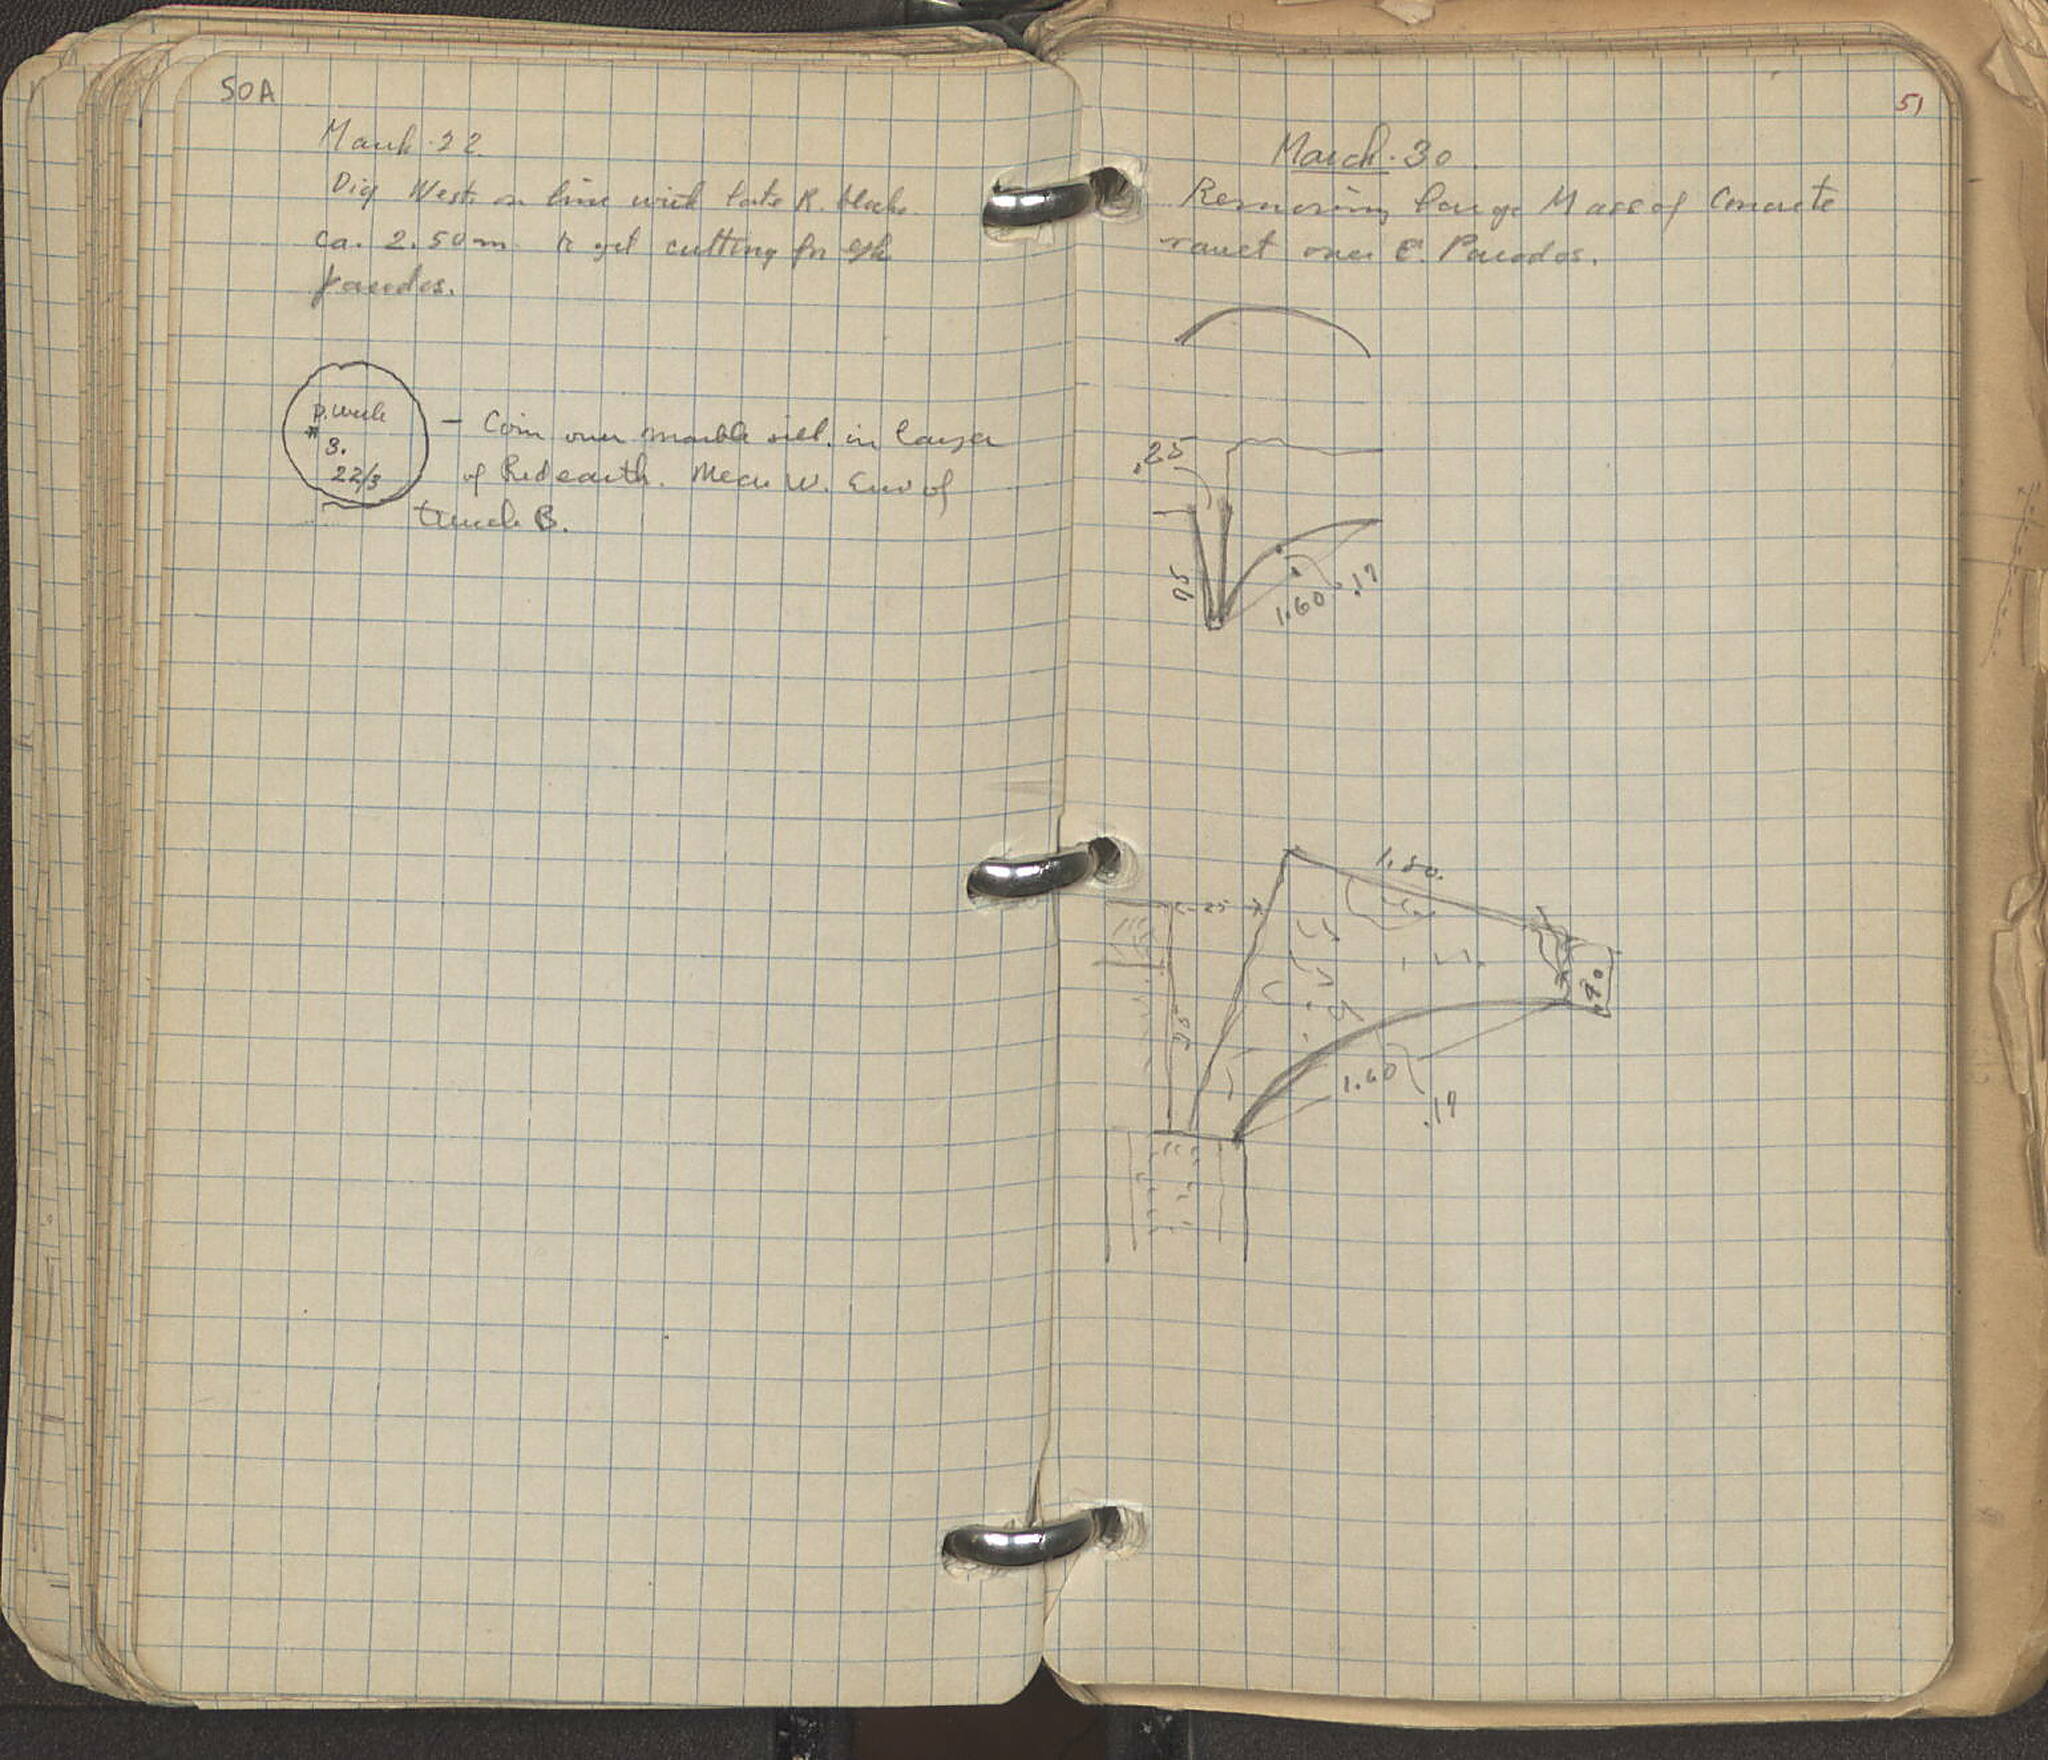 50A
March 22.
Dig West on line with late R. blocks
ca. 2.50m to get cutting for Gk
parodos.
#3.
22/3
— Coin over marble sill. in layer
of Red earth. Near W. End of
trench B.
51
March. 30.
Removing large Mass of Concrete
vault over E. Parodos.
.25
.95
1.60
.17
1.80.
.25
.95
.90
1.60
.17